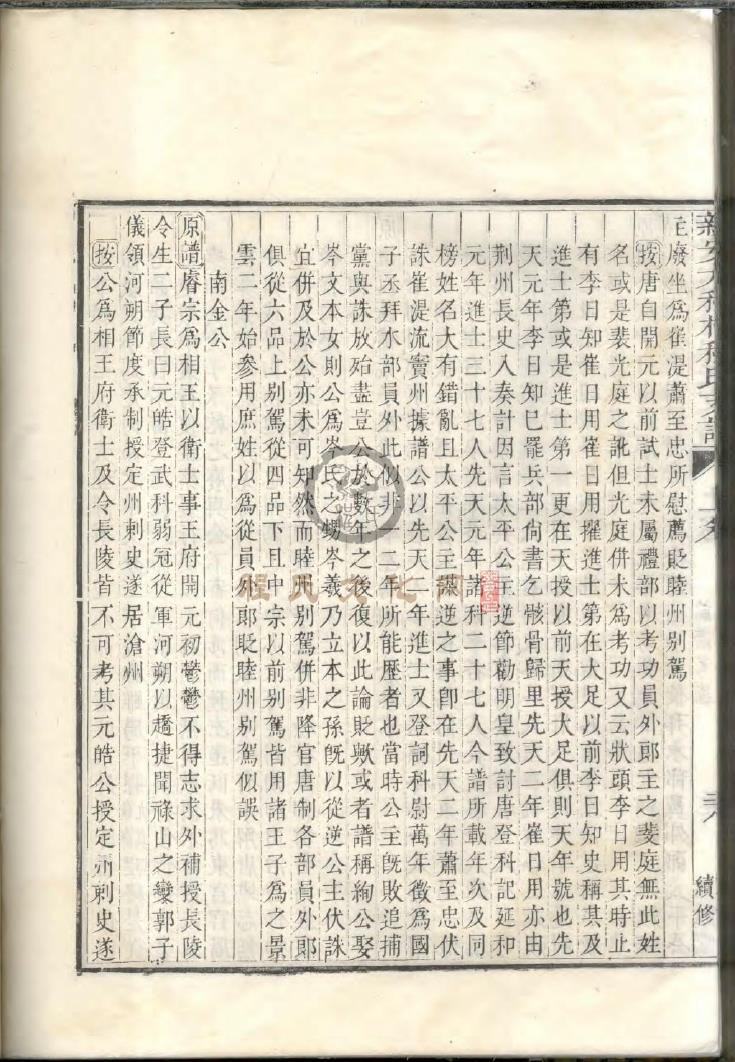 新安大程村程氏支譜
續修
主廢坐為崔湜蕭至忠所慰薦貶睦州别駕
按唐自開元以前試士未屬禮部以考功員外郎主之斐庭無此姓
名或是裴光庭之訛但光庭併未為考功又云狀頭李日用其時止
有李日知崔日用崔日用擢進士第在大足以前李日知史稱其及
進士第或是進士第一更在天授以前天授大足俱則天年號也先
天元年李日知已罷兵部尚書乞骸骨歸里先天二年崔日用亦由
荆州長史入奏計因言太平公主逆節勸明皇致討唐登科記延和
元年進士三十七人先天元年諸科二十七人今譜所載年次及同
榜姓名大有錯亂且太平公主謀逆之事卽在先天二年蕭至忠伏
誅崔湜流竇州據譜公以先天二年進士又登詞科尉萬年徵為國
子丞拜水部員外此似非一二年所能歷者也當時公主旣敗追捕
黨與誅放殆盡豈公於數年之後復以此論貶歟或者譜稱絢公娶
岑文本女則公為岑氏之甥岑羲乃立本之孫旣以從逆公主伏誅
宜併及於公亦未可知然而睦州别駕併非降官唐制各部員外郎
俱從六品上别駕從四品下且中宗以前别駕皆用諸王子為之景
雲二年始參用庶姓以為從員外郎貶睦州别駕似誤
南金公
原譜睿宗為相王以衛士事王府開元初鬱鬱不得志求外補授長陵
令生二子長曰元皓登武科弱冠從軍河朔以趫捷聞祿山之變郭子
儀領河朔節度承制授定州刺史遂居滄州
按公為相王府衛士及令長陵皆不可考其元皓公授定州刺史遂
程氏文化網